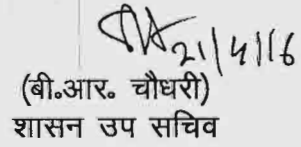 21/4/16
(बी॰आर॰ चौधरी)
शासन उप सचिव